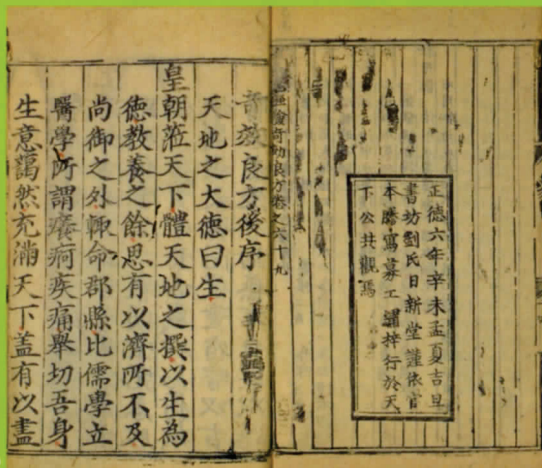 正德六年辛未孟夏吉旦
書坊劉氏日新堂謹依官
本謄寫募工繡梓行於天
下公共觀焉
經驗奇効良方卷之六十九
奇效良方後序
天地之大德曰生
皇朝蒞天下體天地之撰以生為
德教養之餘思有以濟所不及
尚御之外輙命郡縣比儒學立
醫學所謂癢痾疾痛舉切吾身
生意藹然充滿天下盖有以盡